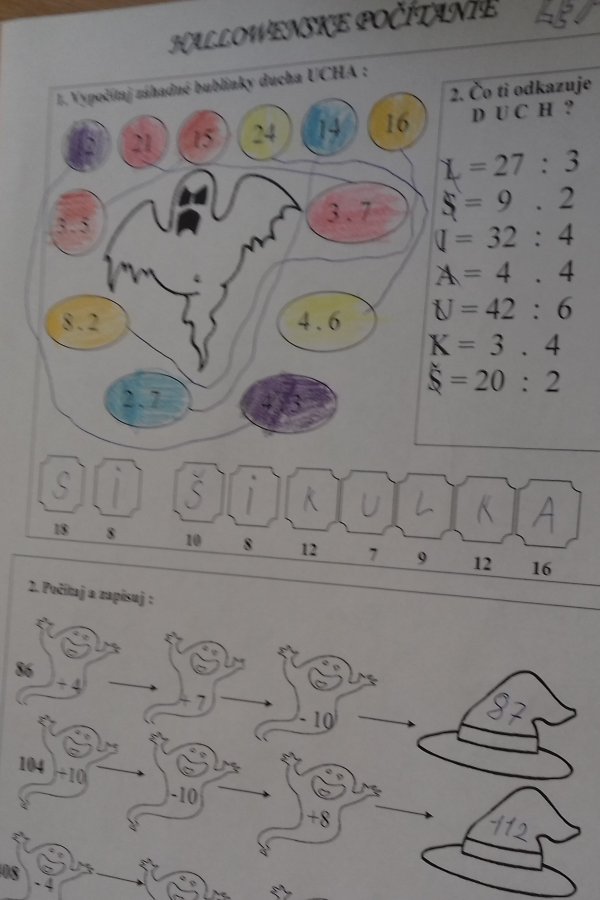 HALLOWENSKE POČÍTANIE
1. Vypočítaj záhadné bublinky ducha UCHA :
12 21 15 24 14 16
3.5
3.7
8.2
4.6
2.7
4.3
2. Čo ti odkazuje
D U C H ?
L = 27 : 3
S = 9 . 2
I = 32 : 4
A = 4 . 4
U = 42 : 6
K = 3 . 4
Š = 20 : 2
S i Š i K U L K A
18 8 10 8 12 7 9 12 16
2. Počítaj a zapisuj :
86 +4 +7 - 10 87
104 +10 -10 +8 112
- 4